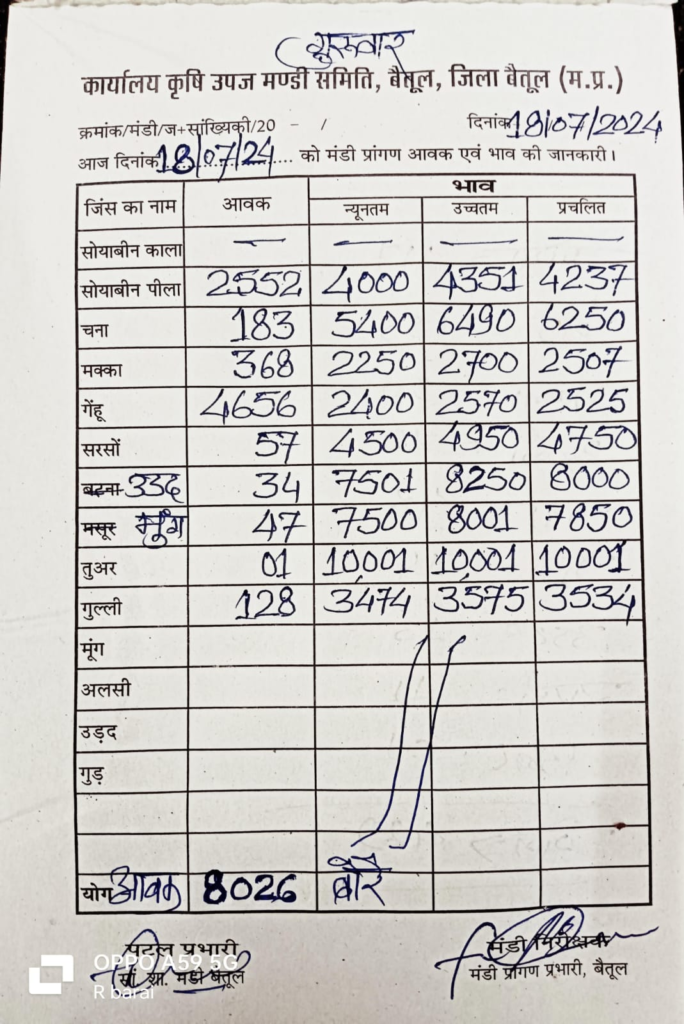 (गुरूवार
कार्यालय कृषि उपज मण्डी समिति, बैतूल, जिला बैतूल (म.प्र.)
क्रमांक/मंडी/ज+सांख्यिकी/20 - / दिनांक 18/07/2024
आज दिनांक 18/07/24 .... को मंडी प्रांगण आवक एवं भाव की जानकारी।
जिंस का नाम आवक भाव
न्यूनतम उच्चतम प्रचलित
सोयाबीन काला — — — —
सोयाबीन पीला 2552 4000 4351 4237
चना 183 5400 6490 6250
मक्का 368 2250 2700 2507
गेंहू 4656 2400 2570 2525
सरसों 57 4500 4950 4750
बटना उउद 34 7501 8250 8000
मसूर मूंग 47 7500 8001 7850
तुअर 01 10,001 10,001 10001
गुल्ली 128 3474 3575 3534
मूंग
अलसी
उड़द
गुड़
योग आवक 8026 बोरे
पटल प्रभारी मंडी निरीक्षक
सां. शा. मंडी बैतूल मंडी प्रांगण प्रभारी, बैतूल
OPPO A59 5G
R barai